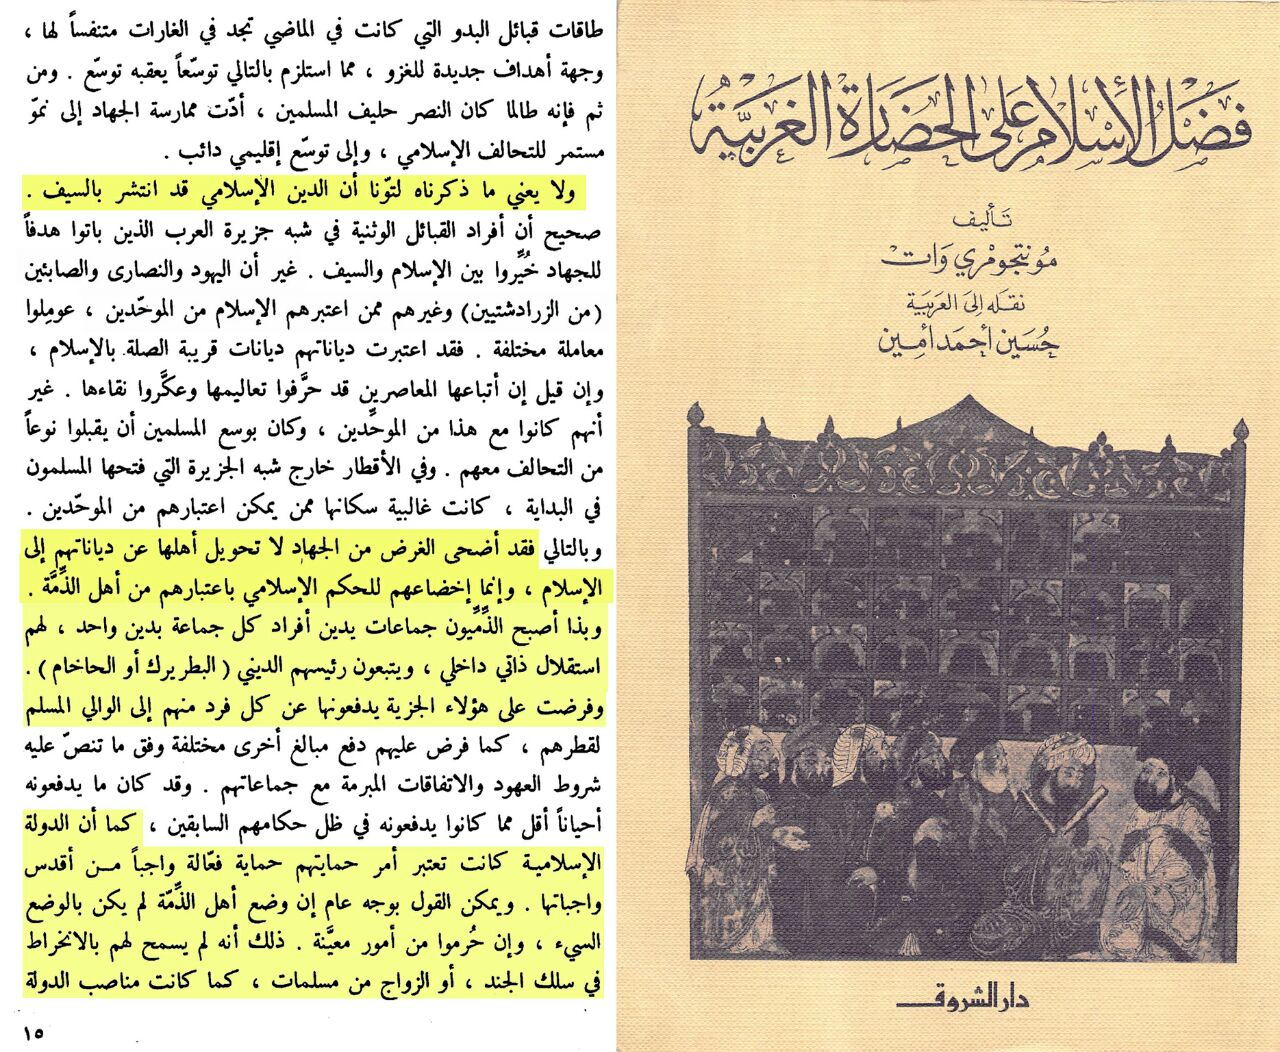 طاقات قبائل البدو التي كانت في الماضي تجد في الغارات متنفساً لها ،
وجهة أهداف جديدة للغزو ، مما استلزم بالتالي توسّعاً يعقبه توسّع . ومن
ثم فإنه طالما كان النصر حليف المسلمين ، أدّت ممارسة الجهاد إلى نموّ
مستمر للتحالف الإسلامي ، وإلى توسّع إقليمي دائب .
ولا يعني ما ذكرناه لتوّنا أن الدين الإسلامي قد انتشر بالسيف .
صحيح أن أفراد القبائل الوثنية في شبه جزيرة العرب الذين باتوا هدفاً
للجهاد خُيِّروا بين الإسلام والسيف . غير أن اليهود والنصارى والصابئين
(من الزرادشتيين) وغيرهم ممن اعتبرهم الإسلام من الموحّدين ، عوملوا
معاملة مختلفة . فقد اعتبرت دياناتهم ديانات قريبة الصلة بالإسلام ،
وإن قيل إن أتباعها المعاصرين قد حرَّفوا تعاليمها وعكَّروا نقاءها . غير
أنهم كانوا مع هذا من الموحِّدين ، وكان بوسع المسلمين أن يقبلوا نوعاً
من التحالف معهم . وفي الأقطار خارج شبه الجزيرة التي فتحها المسلمون
في البداية ، كانت غالبية سكانها ممن يمكن اعتبارهم من الموحّدين .
وبالتالي فقد أضحى الغرض من الجهاد لا تحويل أهلها عن دياناتهم إلى
الإسلام ، وإنما إخضاعهم للحكم الإسلامي باعتبارهم من أهل الذِّمَّة .
وبذا أصبح الذِّمِّيون جماعات يدين أفراد كل جماعة بدين واحد ، لهم
استقلال ذاتي داخلي ، ويتبعون رئيسهم الديني ( البطريرك أو الحاخام ) .
وفرضت على هؤلاء الجزية يدفعونها عن كل فرد منهم إلى الوالي المسلم
لقطرهم ، كما فرض عليهم دفع مبالغ أخرى مختلفة وفق ما تنصّ عليه
شروط العهود والاتفاقات المبرمة مع جماعاتهم . وقد كان ما يدفعونه
أحياناً أقل مما كانوا يدفعونه في ظل حكامهم السابقين ، كما أن الدولة
الإسلامية كانت تعتبر أمر حمايتهم حماية فعّالة واجباً مـن أقدس
واجباتها . ويمكن القول بوجه عام إن وضع أهل الذِّمّة لم يكن بالوضع
السيء ، وإن حُرموا من أمور معيَّنة . ذلك أنه لم يسمح لهم بالانخراط
في سلك الجند ، أو الزواج من مسلمات ، كما كانت مناصب الدولة
١٥
فضل الإسلام على الحضارة الغربية
تأليف
مونتجومري وات
نقله إلى العربية
حسين أحمد أمين
دار الشروق